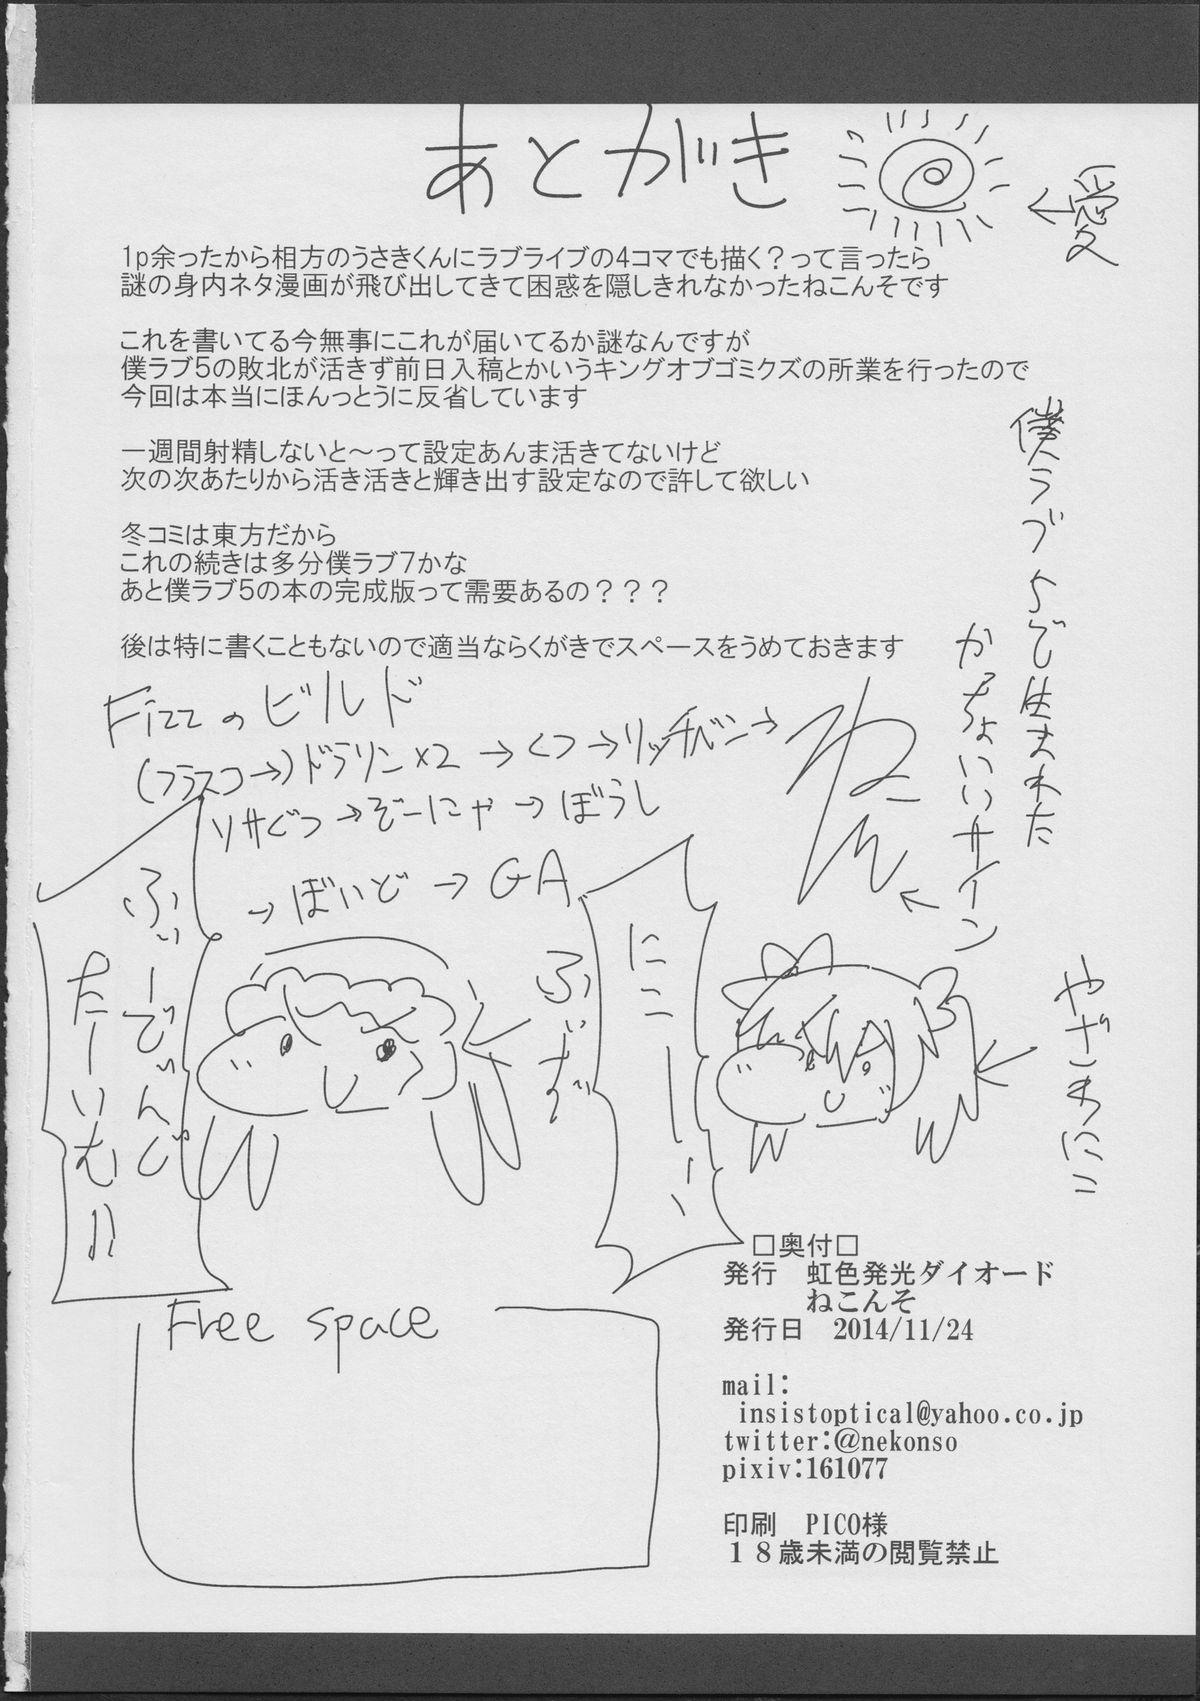 あとがき
←愛
1p余ったから相方のうさきくんにラブライブの4コマでも描く?って言ったら
謎の身内ネタ漫画が飛び出してきて困惑を隠しきれなかったねこんそです
これを書いてる今無事にこれが届いてるか謎なんですが
僕ラブ5の敗北が活きず前日入稿とかいうキングオブゴミクズの所業を行ったので
今回は本当にほんっとうに反省しています
一週間射精しないと~って設定あんま活きてないけど
次の次あたりから活き活きと輝き出す設定なので許して欲しい
冬コミは東方だから
これの続きは多分僕ラブ7かな
あと僕ラブ5の本の完成版って需要あるの???
後は特に書くこともないので適当ならくがきでスペースをうめておきます
僕ラブ5で生まれた
かっちょいいサイン
ねん
Fizzのビルド
(フラスコ→)ドラリン×2→くつ→リッチベン→
ソサぐつ→ぞーにゃ→ぼうし
→ぼいど→GA
やざわにこ
にこーーー
ふぃず
ふぃーでぃんぐ
たーいむ!!
Free space
□奥付□
発行 虹色発光ダイオード
ねこんそ
発行日 2014/11/24
mail:
insistoptical@yahoo.co.jp
twitter:@nekonso
pixiv:161077
印刷 PICO様
18歳未満の閲覧禁止